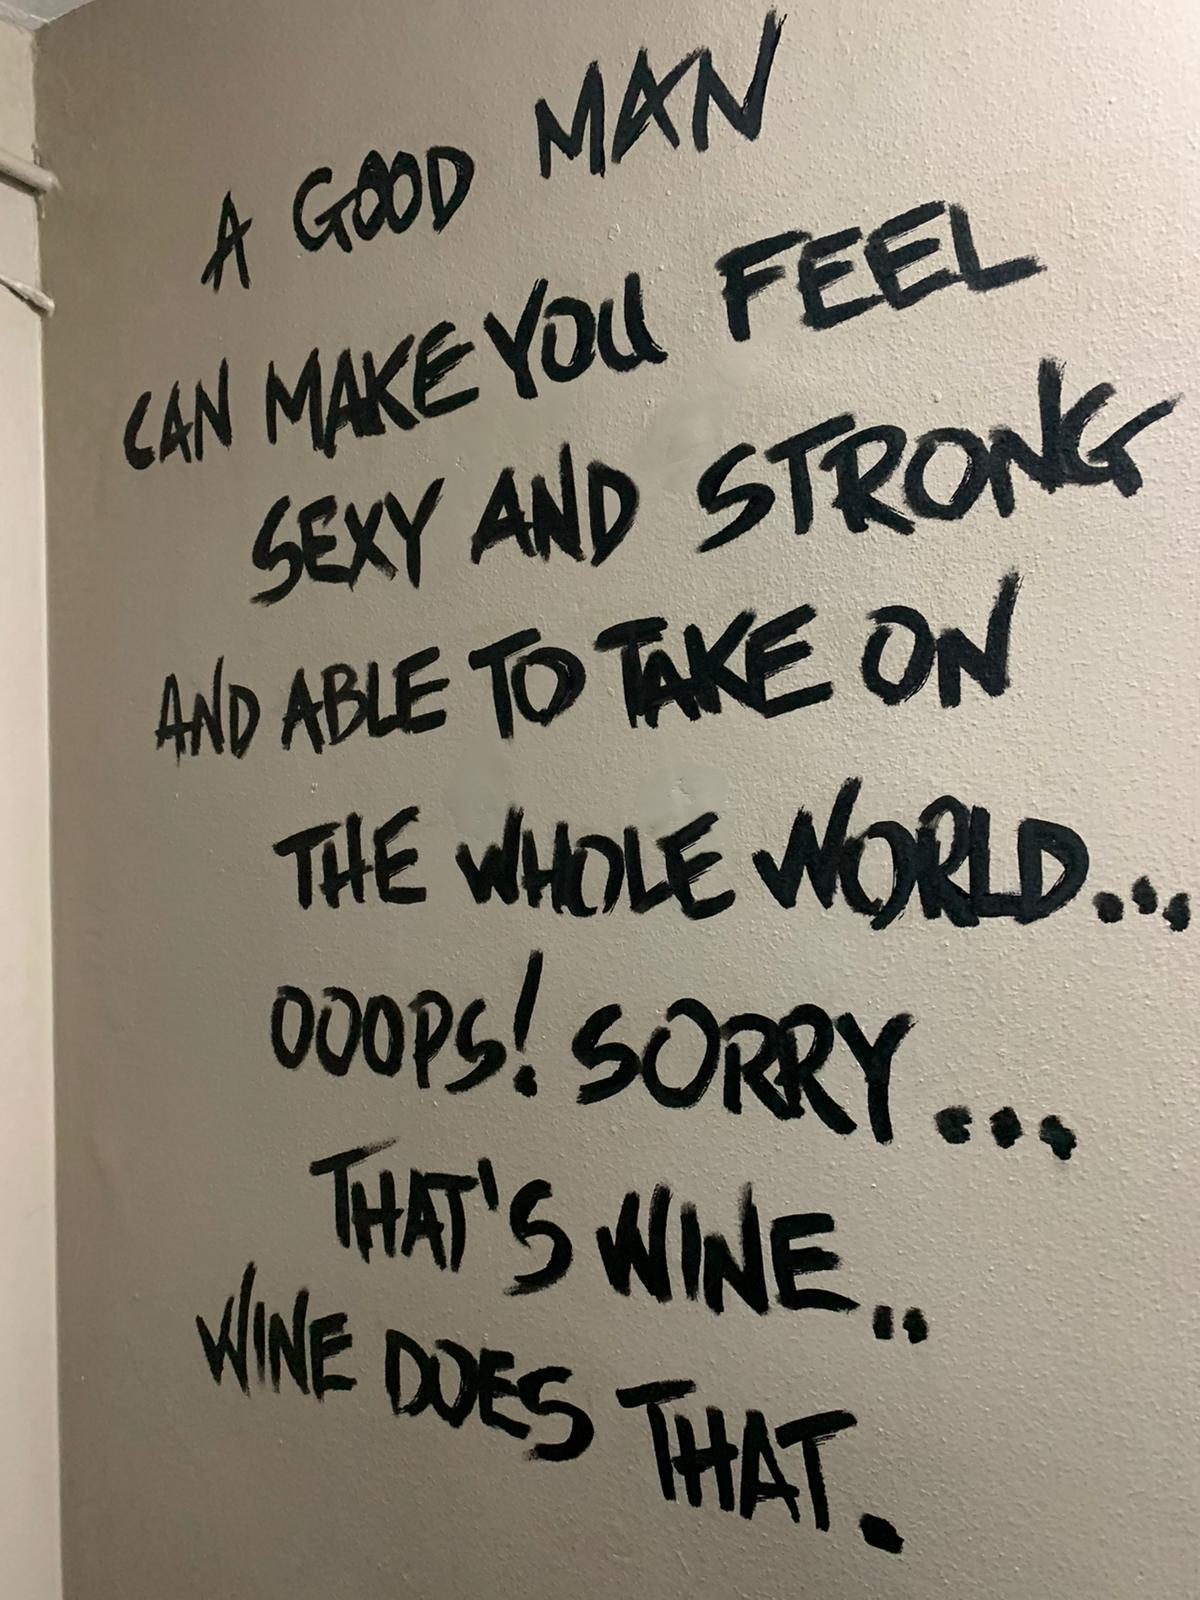 A GOOD MAN
CAN MAKE YOU FEEL
SEXY AND STRONG
AND ABLE TO TAKE ON
THE WHOLE WORLD...
OOOPS! SORRY...
THAT'S WINE..
WINE DOES THAT.